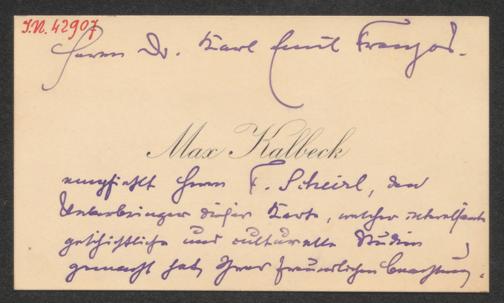 I.N. 42907
Herrn Dr. Karl Emil Franzos.
Max Kalbeck
empfiehlt Herrn F. Scheirl, den
Ueberbringer dieser Karte, welcher interessante
geschichtliche und culturelle Studien
gemacht hat, Ihrer freundlichen Beachtung.